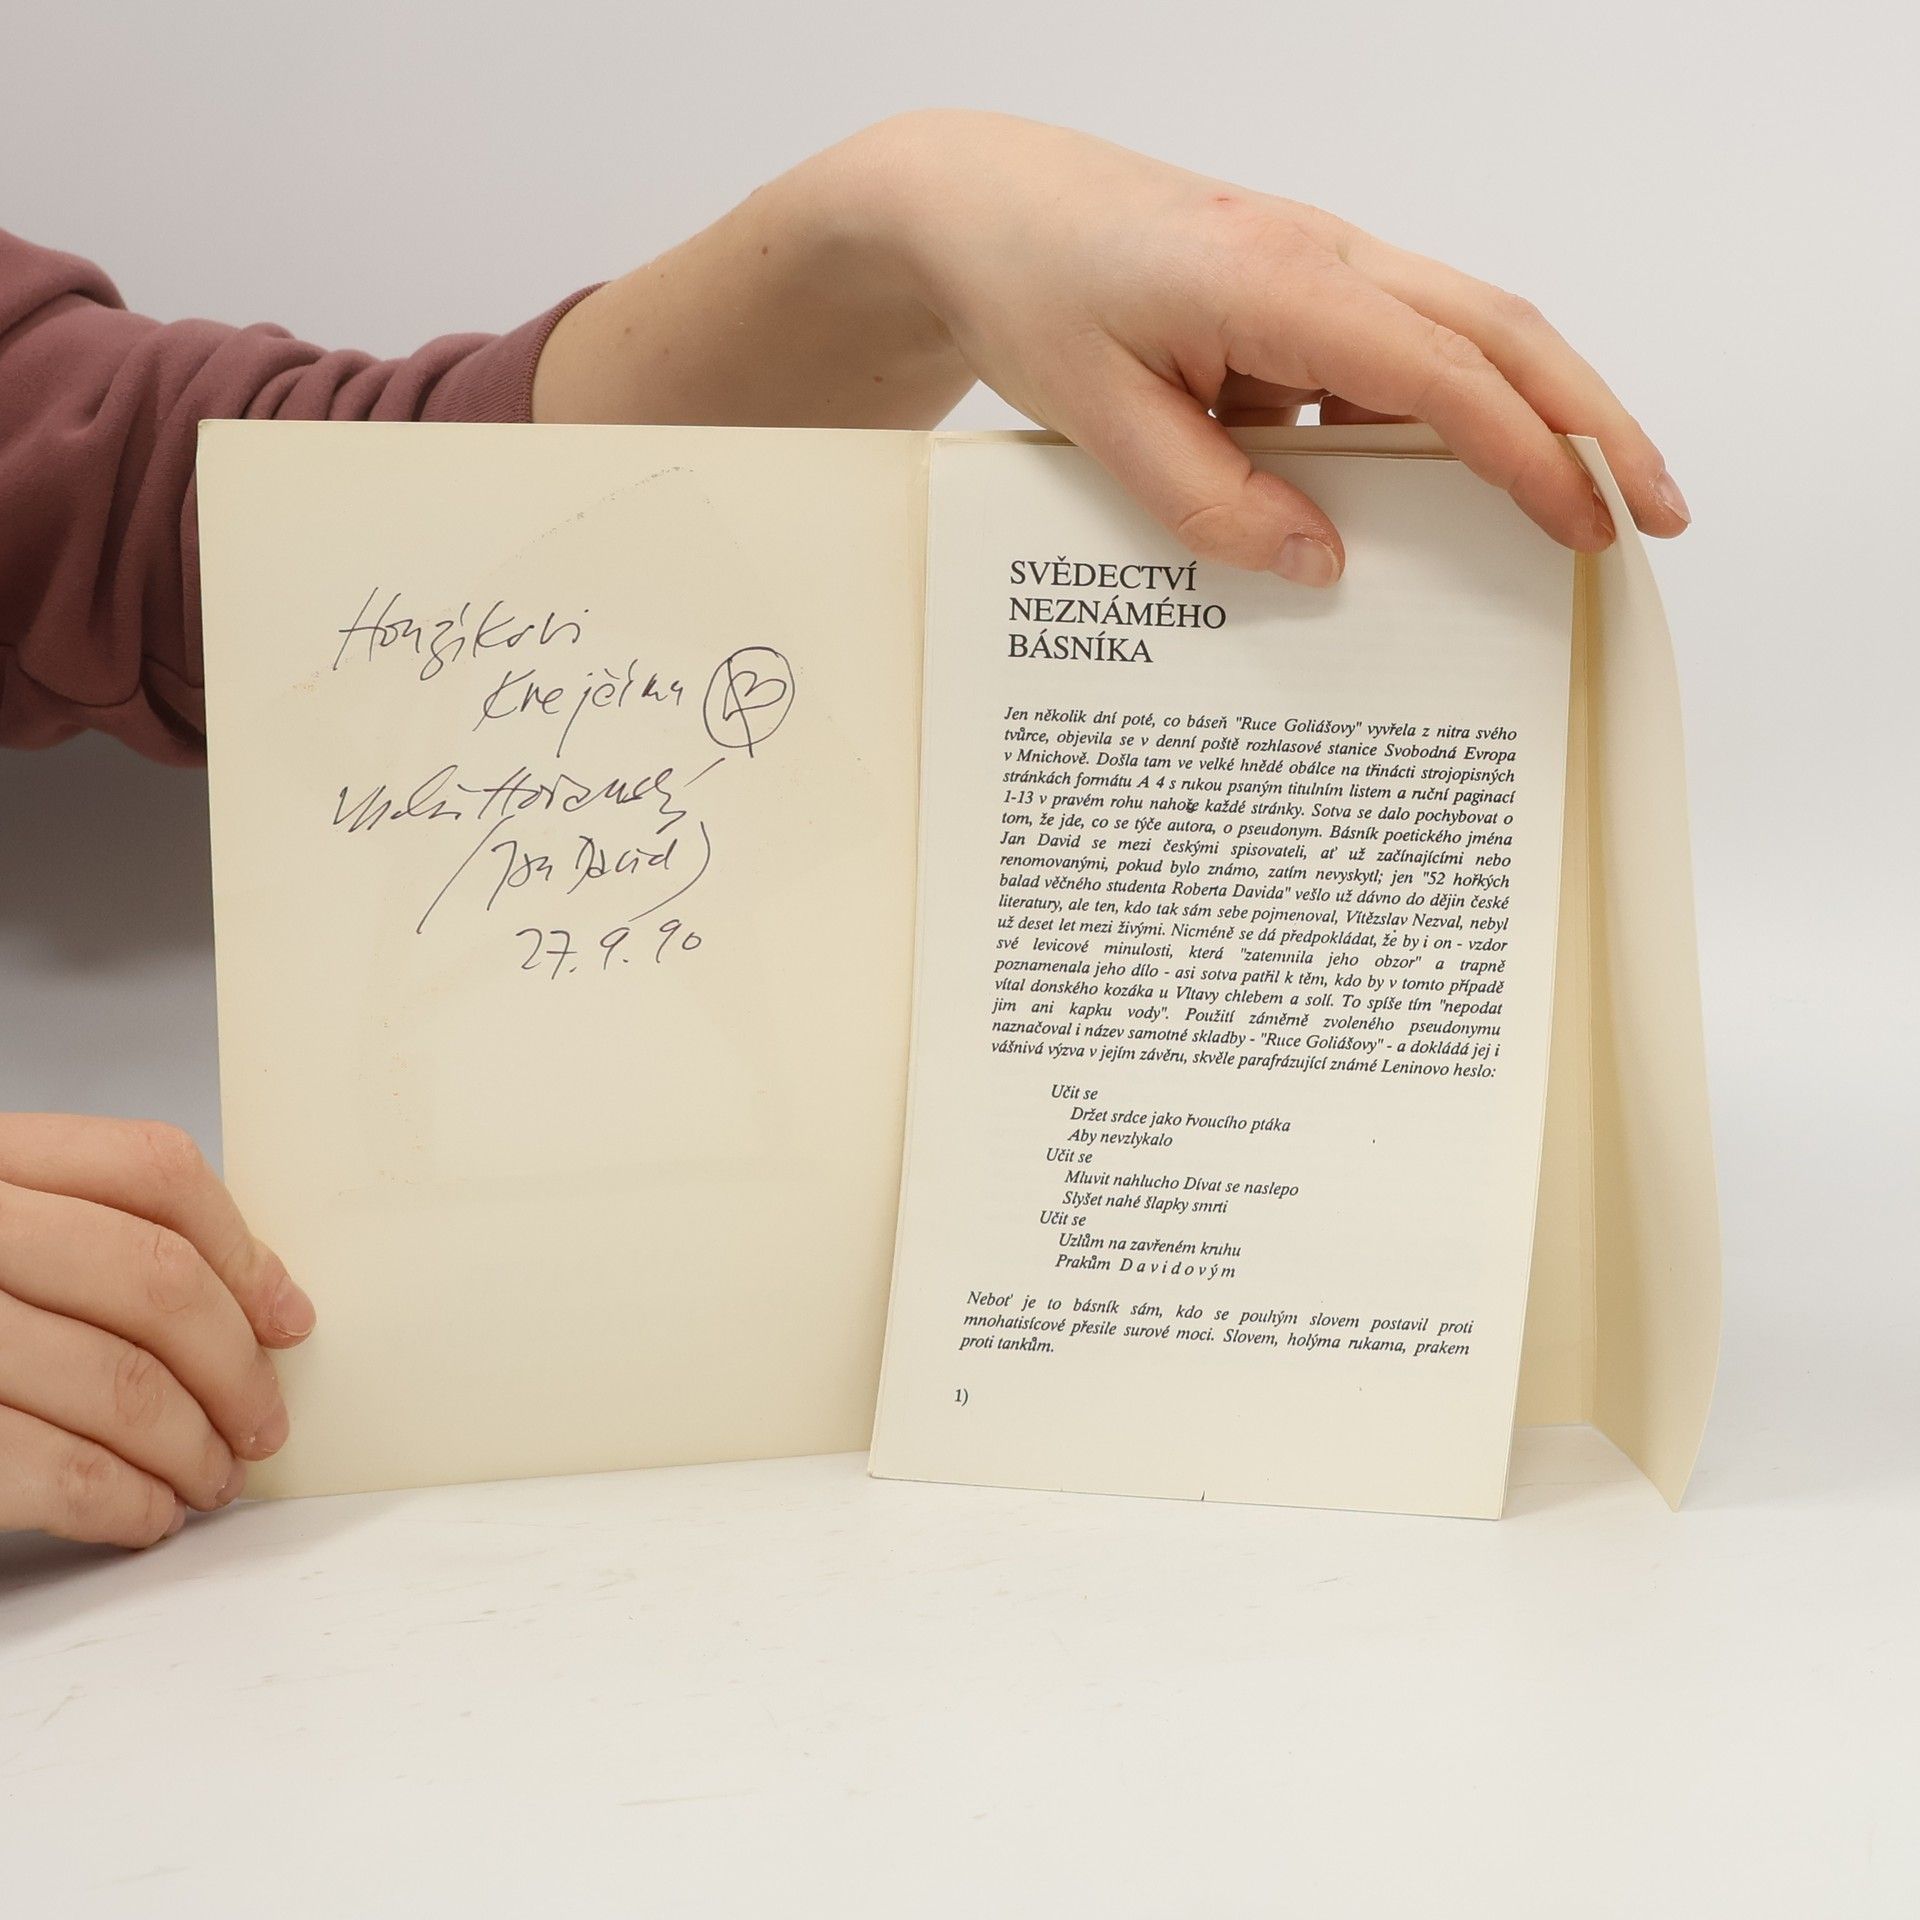 Honzíkovi
Krejčímu
Hořanský
(Jan David)
27. 9. 90
SVĚDECTVÍ
NEZNÁMÉHO
BÁSNÍKA
Jen několik dní poté, co báseň "Ruce Goliášovy" vyvřela z nitra svého
tvůrce, objevila se v denní poště rozhlasové stanice Svobodná Evropa
v Mnichově. Došla tam ve velké hnědé obálce na třinácti strojopisných
stránkách formátu A 4 s rukou psaným titulním listem a ruční paginací
1-13 v pravém rohu nahoře každé stránky. Sotva se dalo pochybovat o
tom, že jde, co se týče autora, o pseudonym. Básník poetického jména
Jan David se mezi českými spisovateli, ať už začínajícími nebo
renomovanými, pokud bylo známo, zatím nevyskytl; jen "52 hořkých
balad věčného studenta Roberta Davida" vešlo už dávno do dějin české
literatury, ale ten, kdo tak sám sebe pojmenoval, Vítězslav Nezval, nebyl
už deset let mezi živými. Nicméně se dá předpokládat, že by i on - vzdor
své levicové minulosti, která "zatemnila jeho obzor" a trapně
poznamenala jeho dílo - asi sotva patřil k těm, kdo by v tomto případě
vítal donského kozáka u Vltavy chlebem a solí. To spíše tím "nepodat
jim ani kapku vody". Použití záměrně zvoleného pseudonymu
naznačoval i název samotné skladby - "Ruce Goliášovy" - a dokládá jej i
vášnivá výzva v jejím závěru, skvěle parafrázující známé Leninovo heslo:
Učit se
Držet srdce jako řvoucího ptáka
Aby nevzlykalo
Učit se
Mluvit nahlucho Dívat se naslepo
Slyšet nahé šlapky smrti
Učit se
Uzlům na zavřeném kruhu
Prakům D a v i d o v ý m
Neboť je to básník sám, kdo se pouhým slovem postavil proti
mnohatisícové přesile surové moci. Slovem, holýma rukama, prakem
proti tankům.
1)